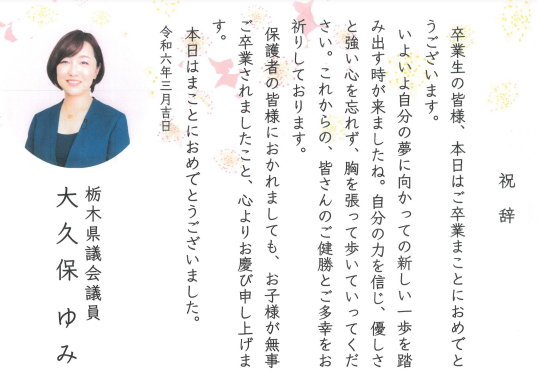 祝辞
卒業生の皆様、本日はご卒業まことにおめでと
うございます。
いよいよ自分の夢に向かっての新しい一歩を踏
み出す時が来ましたね。自分の力を信じ、優しさ
と強い心を忘れず、胸を張って歩いていってくだ
さい。これからの、皆さんのご健勝とご多幸をお
祈りしております。
保護者の皆様におかれましても、お子様が無事
ご卒業されましたこと、心よりお慶び申し上げま
す。
本日はまことにおめでとうございました。
令和六年三月吉日
栃木県議会議員
大久保ゆみ